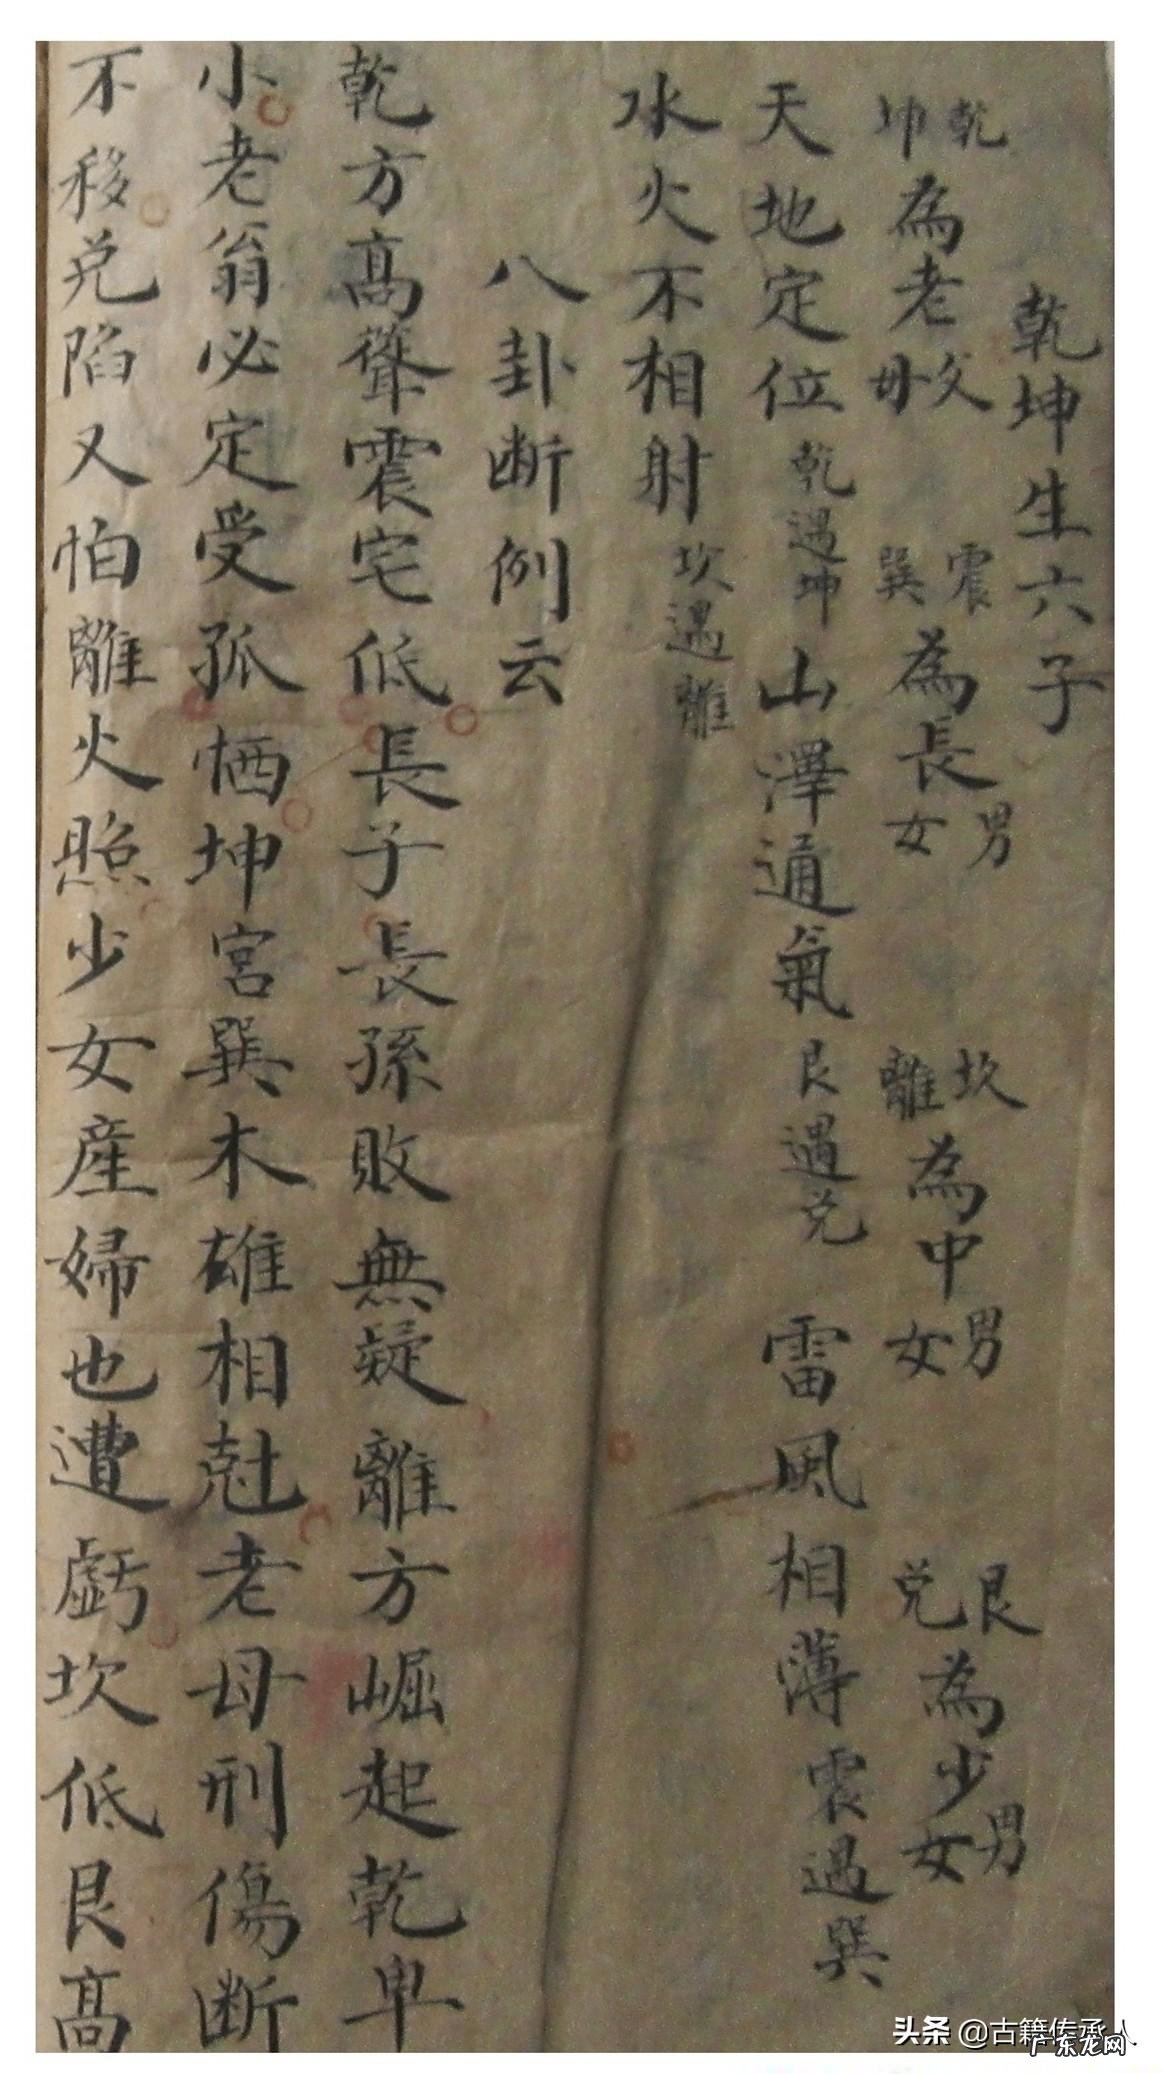 乾坤生六子
乾坤為老父母 震巽為長男女 坎離為中男女 艮兑為少男女
天地定位 乾遇坤 山澤通氣 艮遇兑 雷風相薄 震遇巽
水火不相射 坎遇離
八卦断例云
乾方高聳震宅低長子長孫敗無疑離方崛起乾卑
小老翁必定受孤恓坤宮巽木雄相尅老母刑傷断
不移兑陷又怕離火照少女産婦也遭虧坎低艮高
头条 @古籍传承人
广东龙网